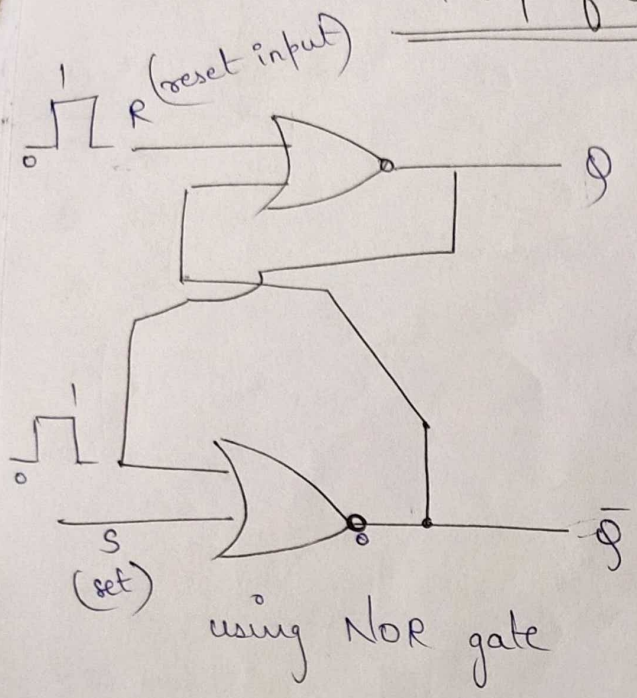 1
0
R (reset input)
Q
1
0
S
(set)
Q̅
using NOR gate